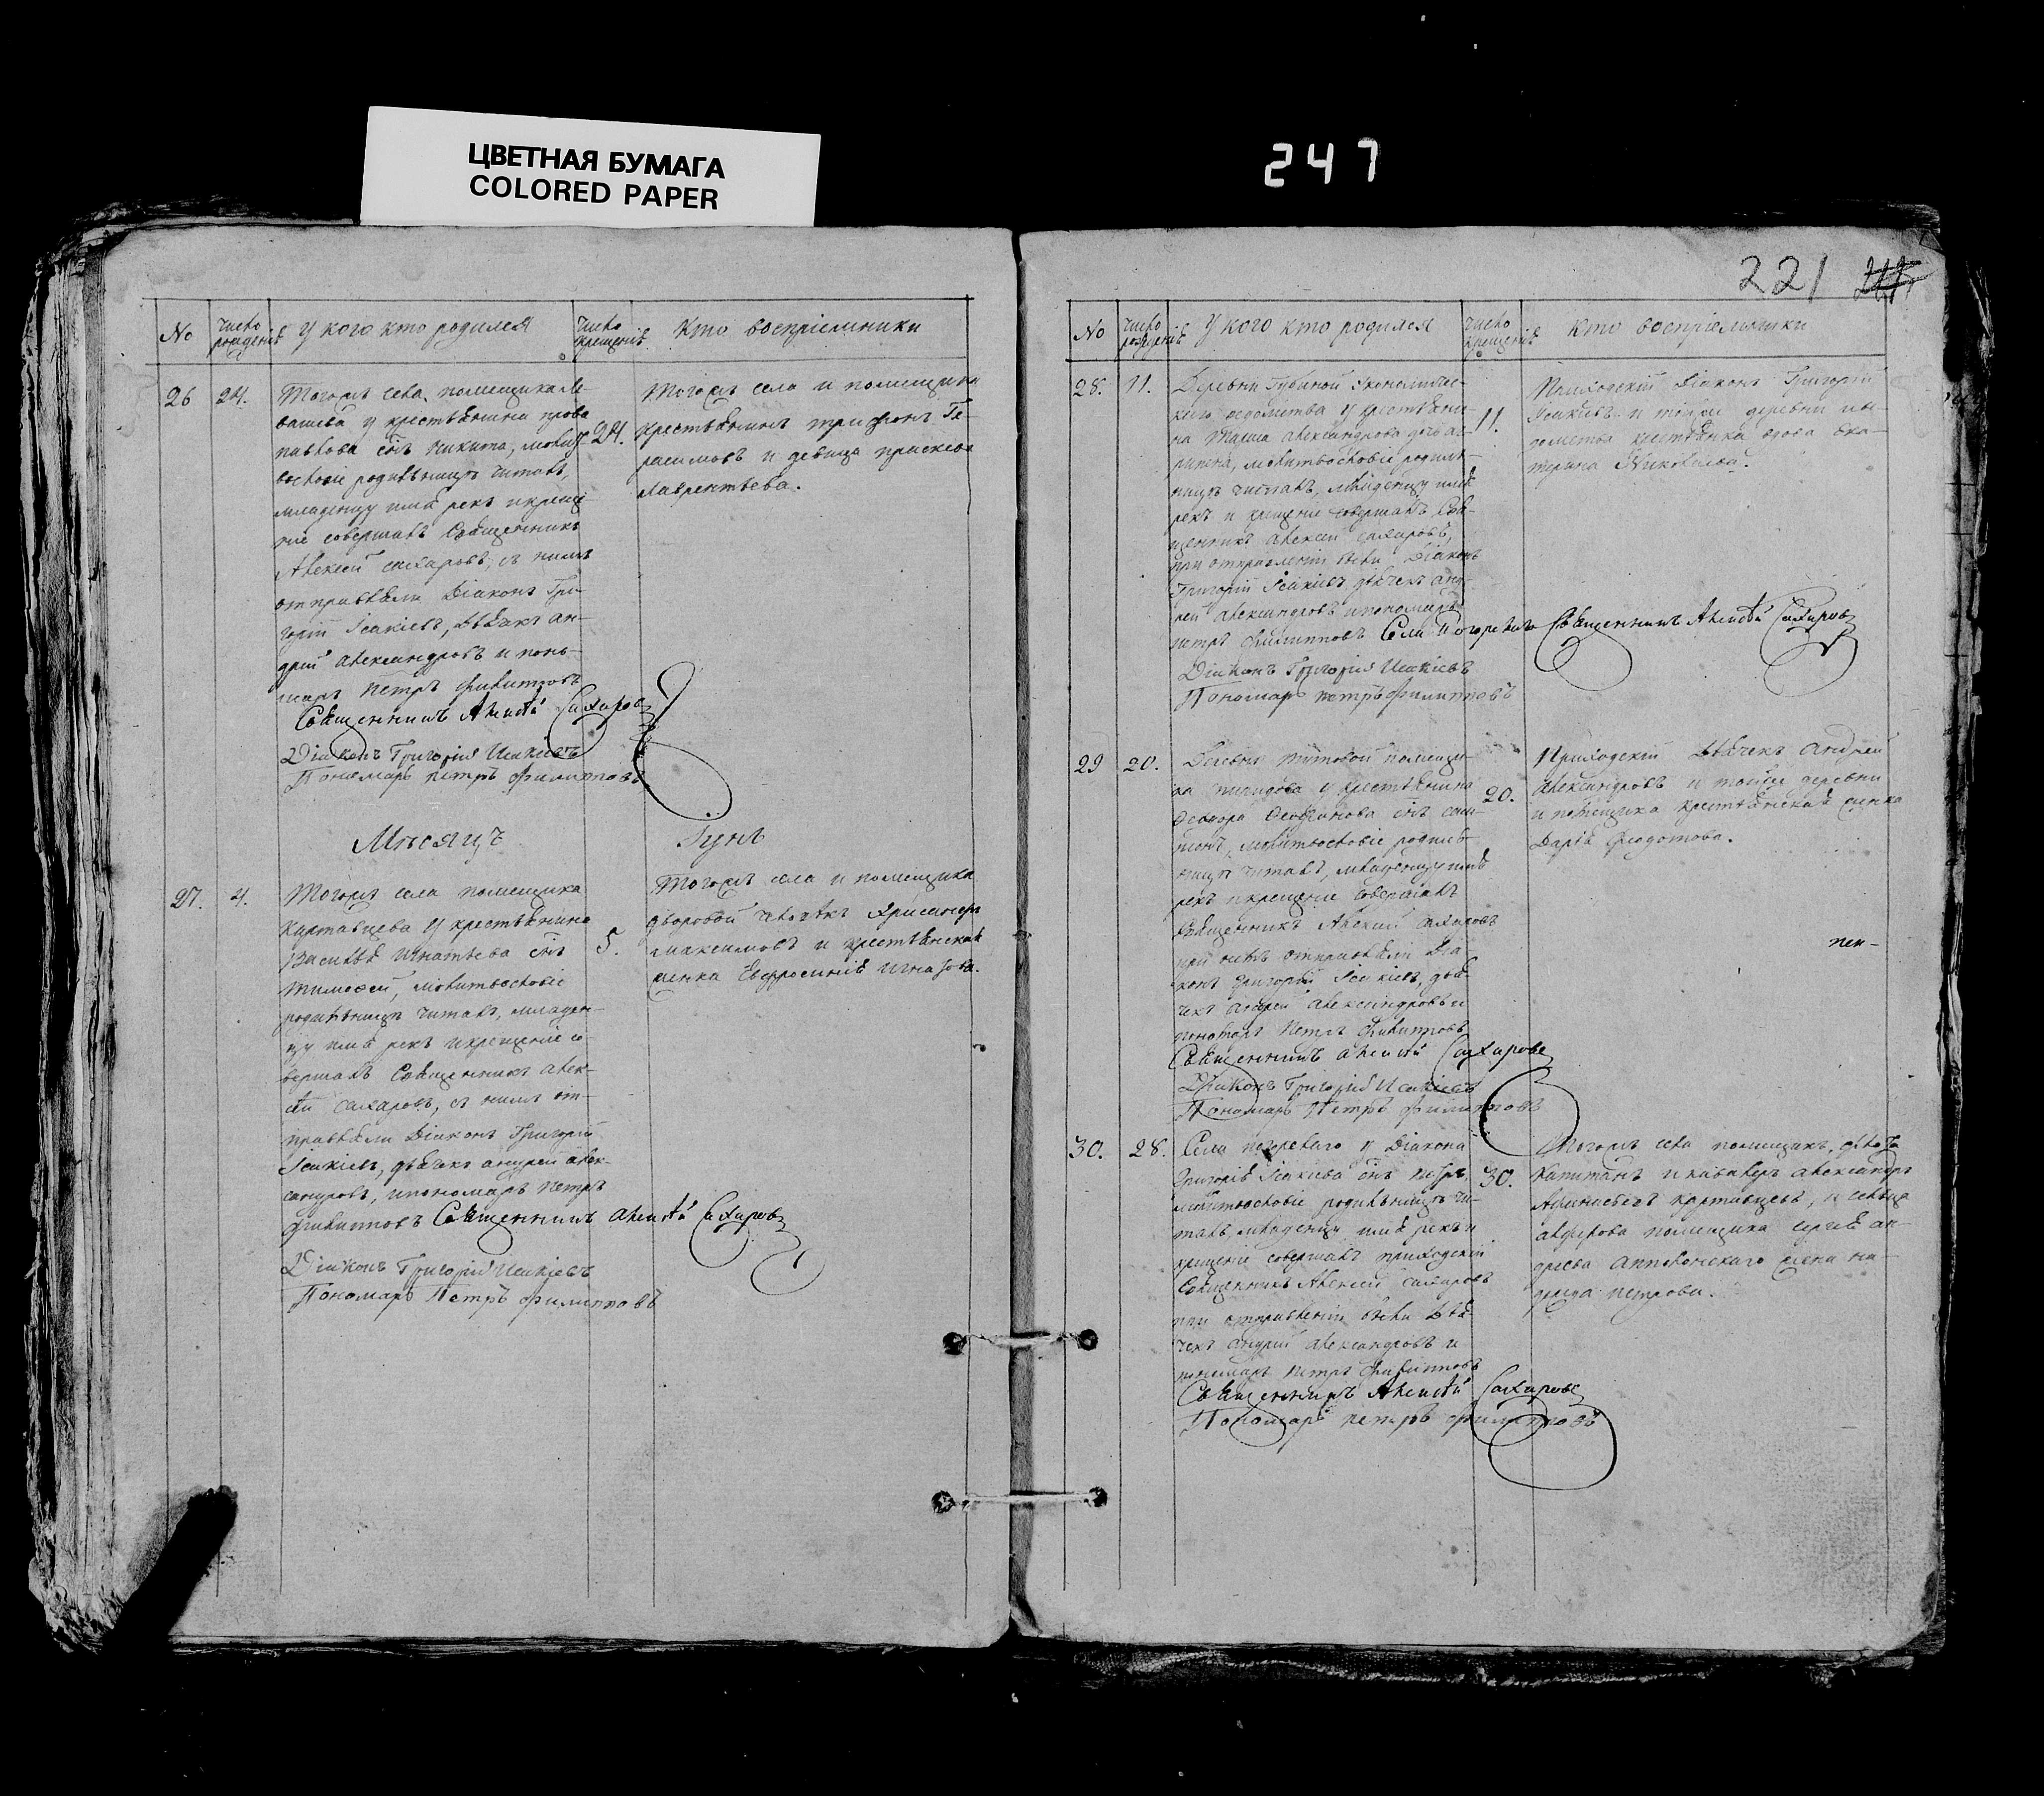 ЦВЕТНАЯ БУМАГА
COLORED PAPER
247
221
No
число рожденія
У кого кто родился
число крещенія
Кто воспріемники
26
24.
Тогожъ села помещика Ле-
вашева у крестьянина прова
павлова сынъ никита, молит-
24.
вословіе родильницѣ читалъ,
младенцу имя рекъ икреще-
ніе совершалъ Священникъ
Алексей сахаровъ, съ нимъ
отправляли Діаконъ Гри-
горій Ісакіевъ, дьячекъ ан-
дрей александровъ и поно-
марь петръ филипповъ
Священникъ Алексѣй Сахаровъ
Діаконъ Григорій Исакіевъ
Пономарь петръ филипповъ
Тогожъ села и помещика
крестьянинъ трифонъ Ге-
расимовъ и девица праскева
лаврентьева.
Мѣсяцъ
Іунь
27.
4.
Тогожъ села помещика
картавцева у крестьянина
василья игнатьева сынъ
5.
тимофей, молитвословіе
родильницѣ читалъ, младен-
цу имя рекъ икрещеніе со-
вершалъ Священникъ алек-
сѣй сахаровъ, съ нимъ от-
правляли Діаконъ Григорій
Ісакіевъ, дьячекъ андрей алек-
сандровъ, ипономарь петръ
филипповъ Священникъ алексѣй Сахаровъ
Діаконъ Григорій Исакіевъ
Пономарь Петръ филипповъ
Тогожъ села и помещика
дворовой человѣкъ
максимовъ и крестьянская
женка Ефросинія
No
число рожденія
У кого кто родился
число крещенія
Кто воспріемники
28.
11.
Деревни Губиной Экономичес-
каго ведомства у крестьяни-
на александрова дочь аг-
11.
рипена, молитвословіе родиль-
ницѣ читалъ, младенцу имя
рекъ и крещеніе совершалъ Свя-
щенникъ алексей сахаровъ,
при отправленіи были Діаконъ
Григорій Ісакіевъ дьячекъ анд-
рей александровъ ипономарь
петръ филипповъ Села Погорелаго Священникъ Алексѣй Сахаровъ
Діаконъ Григорій Исакіевъ
Пономарь петръ филипповъ
Приходскій діаконъ Григорій
Ісакіевъ и тойже деревни
крестьянка вдова ека-
терина Николаева.
29
20.
Деревни титовой помещи-
ка у крестьянина
20.
Феодора сынъ
молитвословіе родиль-
ницѣ читалъ, младенцу имя
рекъ икрещеніе совершалъ
Священникъ Алексей сахаровъ
при немъ отправляли Діа-
конъ Григорій Ісакіевъ, дья-
чекъ андрей александровъ и
пономарь петръ филипповъ
Священникъ алексѣй Сахаровъ
Діаконъ Григорій Исакіевъ
Пономарь Петръ филипповъ
Приходскій дьячекъ андрей
александровъ и тойже деревни
и помещика крестьянская женка
Дарья федотова.
30.
28.
Села погорелаго у Діакона
Григорія Ісакіева сынъ петръ,
30.
молитвословіе родильницѣ чи-
талъ, младенцу имя рекъ и
крещеніе совершалъ приходскій
Священникъ Алексей сахаровъ
при отправленіи были дья-
чекъ андрей александровъ и
пономарь петръ филипповъ
Священникъ Алексѣй Сахаровъ
Пономарь петръ филипповъ
Тогожъ села помещикъ,
капитанъ и кавалеръ александръ
картавцевъ, и сельца
помещика сергея ан-
дреева жена на-
петрова.